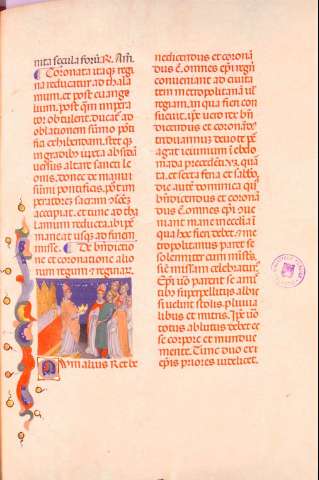 nita secula seculorum. R. Am.
Coronata itaqȝ regi
na reducatur ad thala
mum. et post euange
lium. post qm impera
tor obtulerit. ducatur ad
oblationem summo ponti
fici exhibendam. stetqȝ
in gradibus iuxta absidam
uersus altare sancti le
onis. donec de mani
summi pontificis. post im
peratores sacram comunionem
accipiat. et tunc ad tha
lamum reducta. ibi per
maneat usqȝ ad finem
misse. De benedictio
ne et coronatione alio
rum regum et reginarum.
um alius rex be
nedicendus et coronan
dus est. omnes epi regni
conueniant ad ciuita
tem metropolitanam uel
regiam. in qua fieri con
sueuit. ipse uero rex be
nedicendus et coronandus
triduanum deuote per
agat ieiunium in ebdo
mada precedenti. uidelicet quar
ta. et sexta feria et sabbato.
die autem dominica qua
benedicendus et coronan
dus est. omnes epi con
ueniant mane in ecclesia in
qua hec fieri debent. et me
tropolitanus paret se
solemniter cum ministris.
suis missam celebraturus.
Epi uero parent se ami
ctibus superpelliceis albis
si uoluerint stolis. pluuia
libus et mitris. Ipse uero
totus ablutus debet es
se corpore et mundus
mente. Tunc duo ex
epis priores uidelicet.